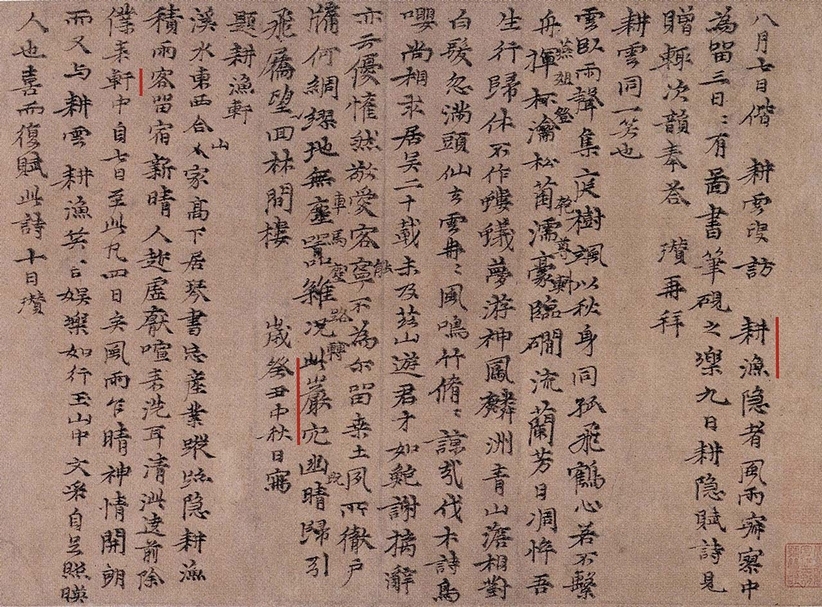 八月七日偕 耕雲叟訪 耕漁隐者風雨寂寥中
為留三日〻有啚書筆硯之樂九日耕隐賦詩見
贈輒次韻奉荅 瓚再拜
耕雲同一笑也
雲臥雨聲集庭樹颯以秋身同孤飛鶴心若不繫
舟揮杯瀹松菌濡豪臨磵流蘭芳日凋悴吾
生行歸休不作螻蟻夢游神鳳麟洲青山澹相對
白髮忽滿頭仙去雲冉〻風鳴竹脩〻諒哉伐木詩鳥
嚶尚相求居吴二十載未及茲山遊君才如鮑謝摛辭
亦云優惟然敬愛客寧不為尔留桑土夙所徹户
牖何綢繆地無塵嚣雜况此巖穴幽晴歸引
車馬塵路轉
飛屩望四林間樓 歲癸丑中秋日寫
題耕漁軒
溪水東西合山人家高下居琴書忘產業蹤跡隐耕漁
積雨客留宿新晴人趁虚厭喧来洗耳清泚遶前除
僕来軒中自七日至此凡四日矣風雨乍晴神情開朗
而又与耕雲 耕漁笑言娱樂如行玉山中文采自足照暎
人也喜而復賦此詩十日瓚